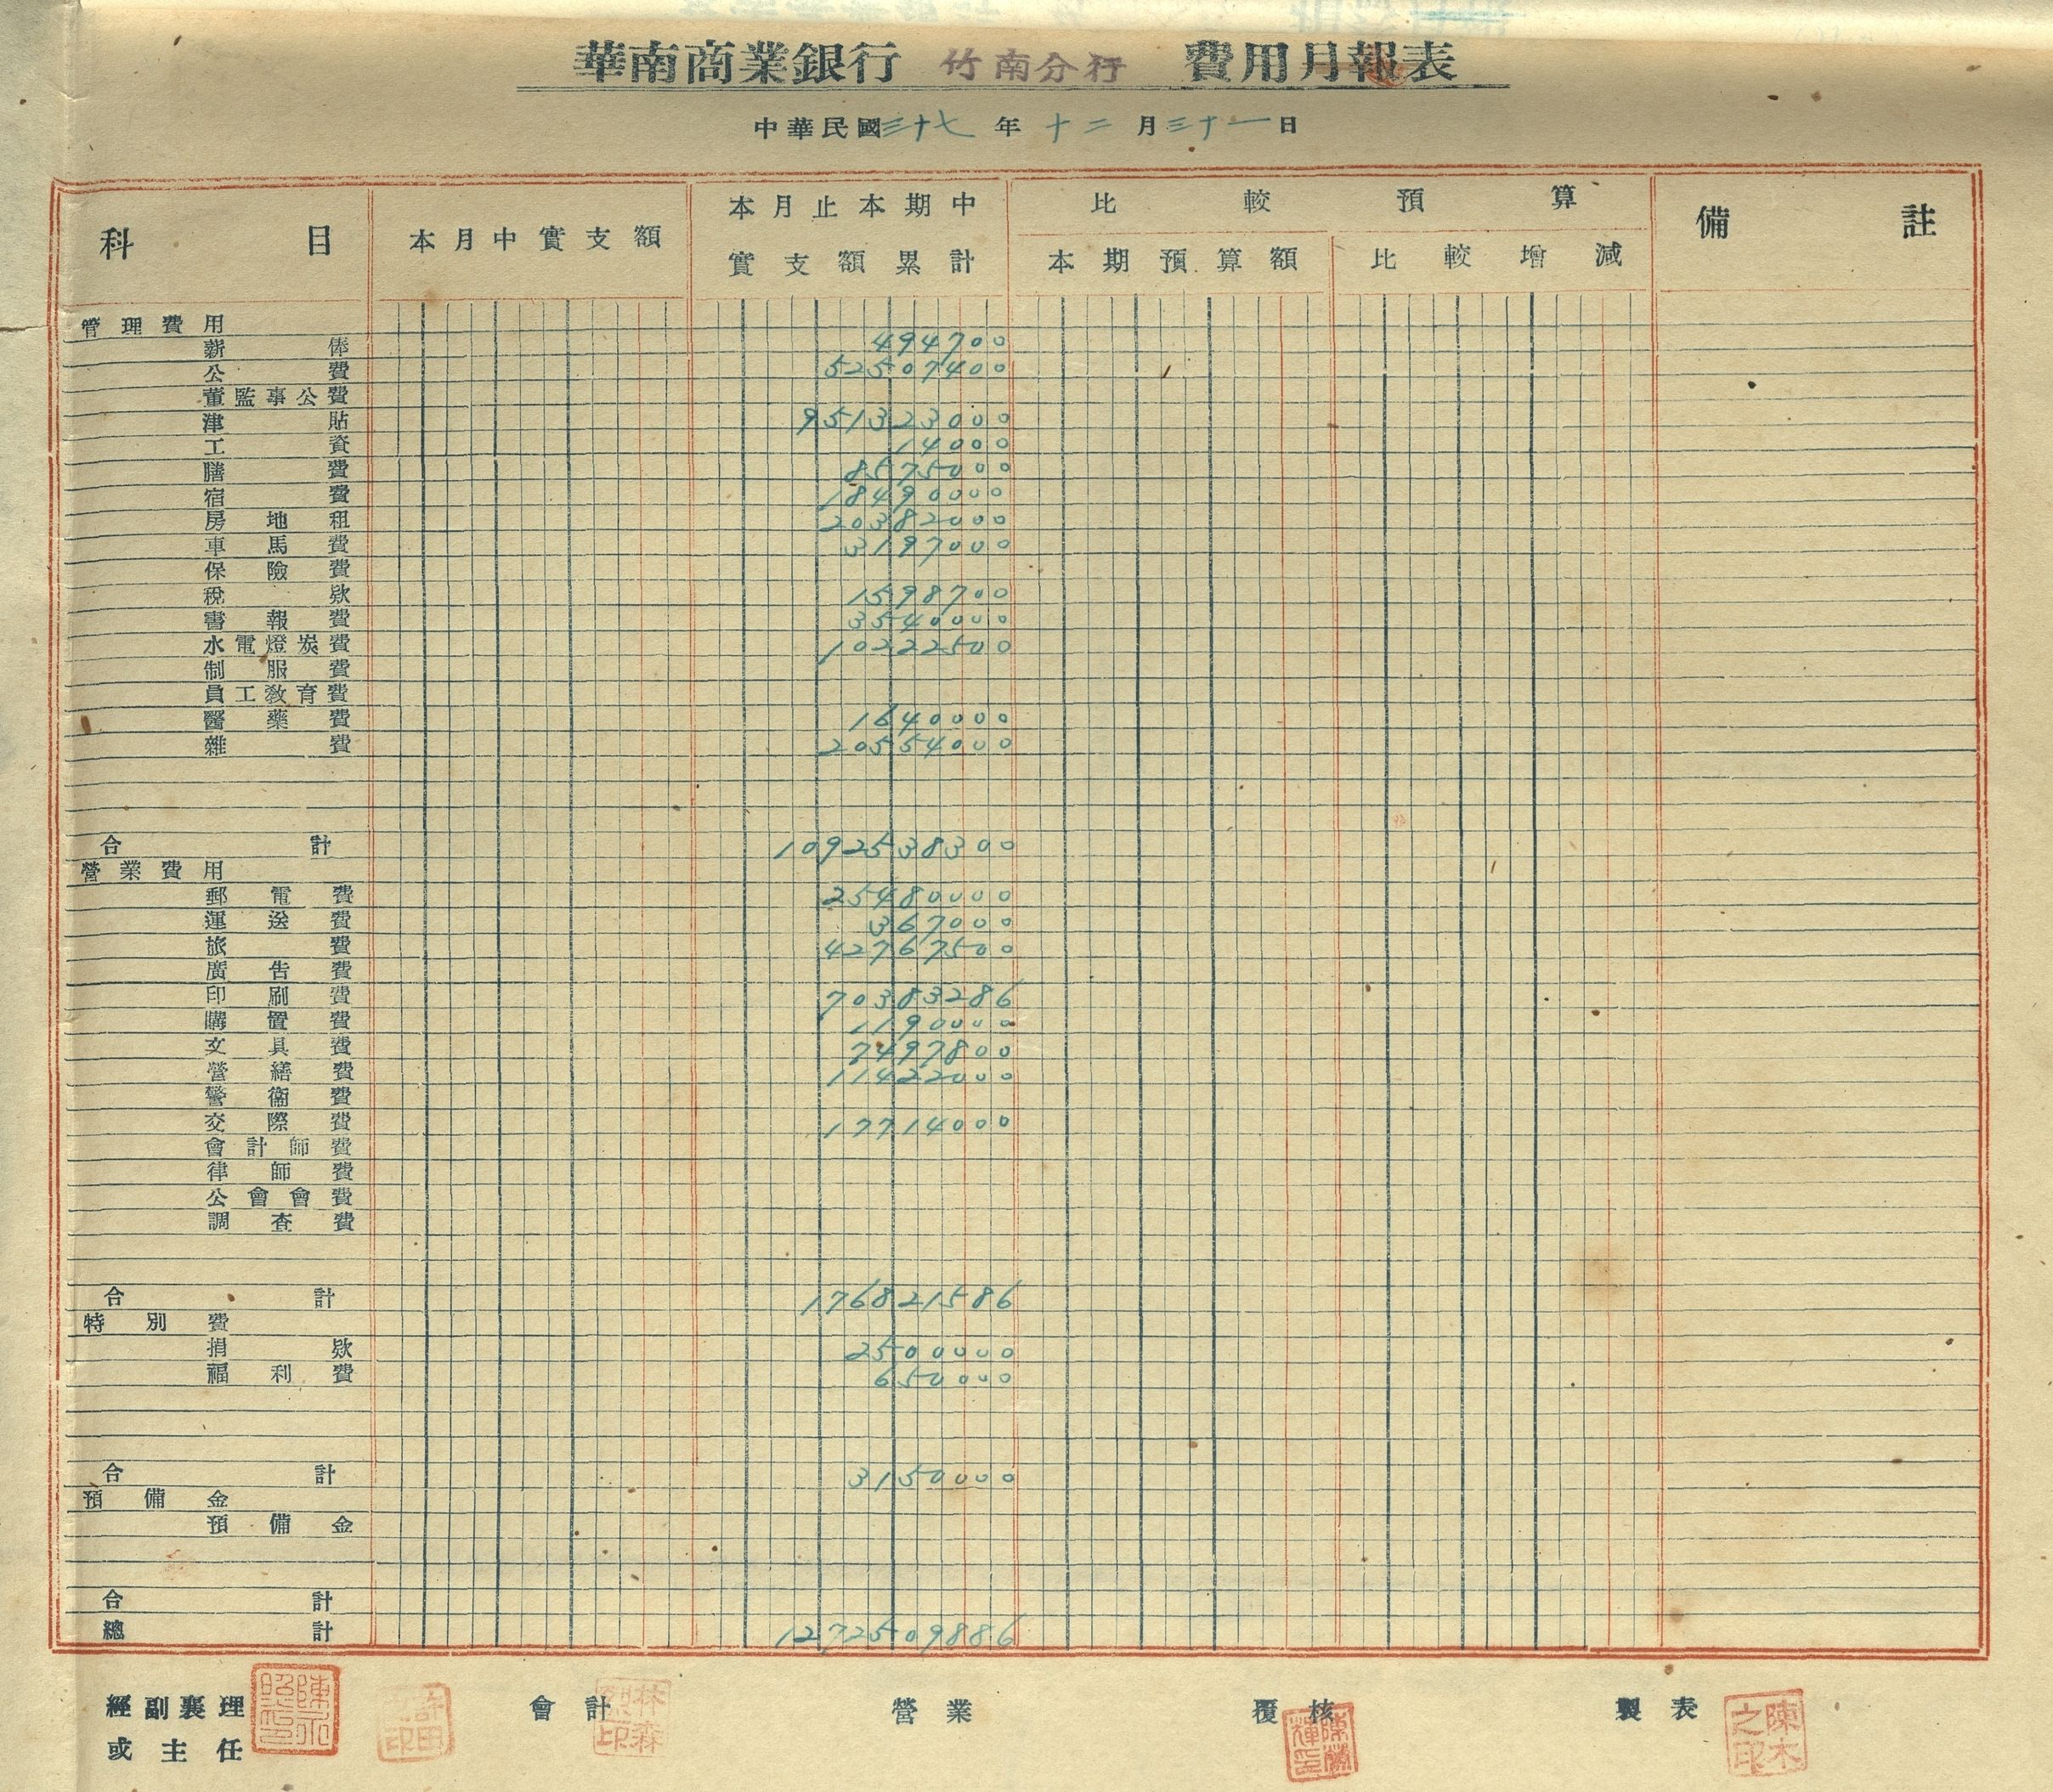 華南商業銀行 竹南分行 費用月報表
中華民國三十七年十二月三十一日
科目 本月中實支額 本月止本期中實支額累計 比較預算 備註
本期預算額 比較增減
管理費用
薪俸 494700
公費 52507400
董監事公費
津貼 951323000
工資 14000
膳費 8575000
宿費 18490000
房地租 20382000
車馬費 3197000
保險費
稅欵 1598700
書報費 3540000
水電燈炭費 10222500
制服費
員工教育費
醫藥費 1640000
雜費 20554000
合計 1092538300
營業費用
郵電費 25480000
運送費 367000
旅費 42767500
廣告費
印刷費 70383286
購置費 1190000
文具費 7497800
營繕費 11422000
警衞費
交際費 17714000
會計師費
律師費
公會會費
調查費
合計 176821586
特別費
捐欵 2500000
福利費 650000
合計 3150000
預備金
預備金
合計
總計 1272509886
經副襄理 會計 營業 覆核 製表
或主任
林森
陳木之印